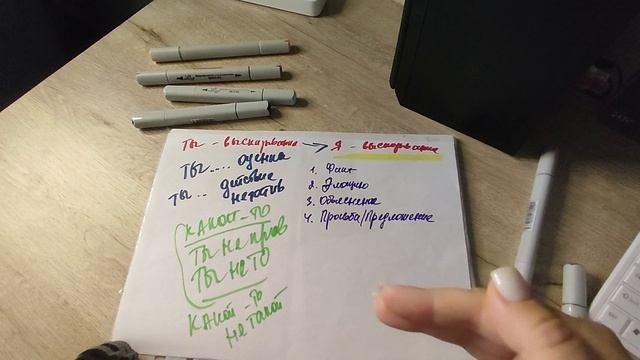 ТЫ - высказывание → Я - высказывание
ТЫ.... оценка
ТЫ.. действие
негатив
КАКОЙ-ТО
ТЫ не прав
ТЫ не ТО
КАКОЙ-ТО
не такой
1. Факт
2. Эмоцию
3. Объяснение
4. Просьба/Предложение